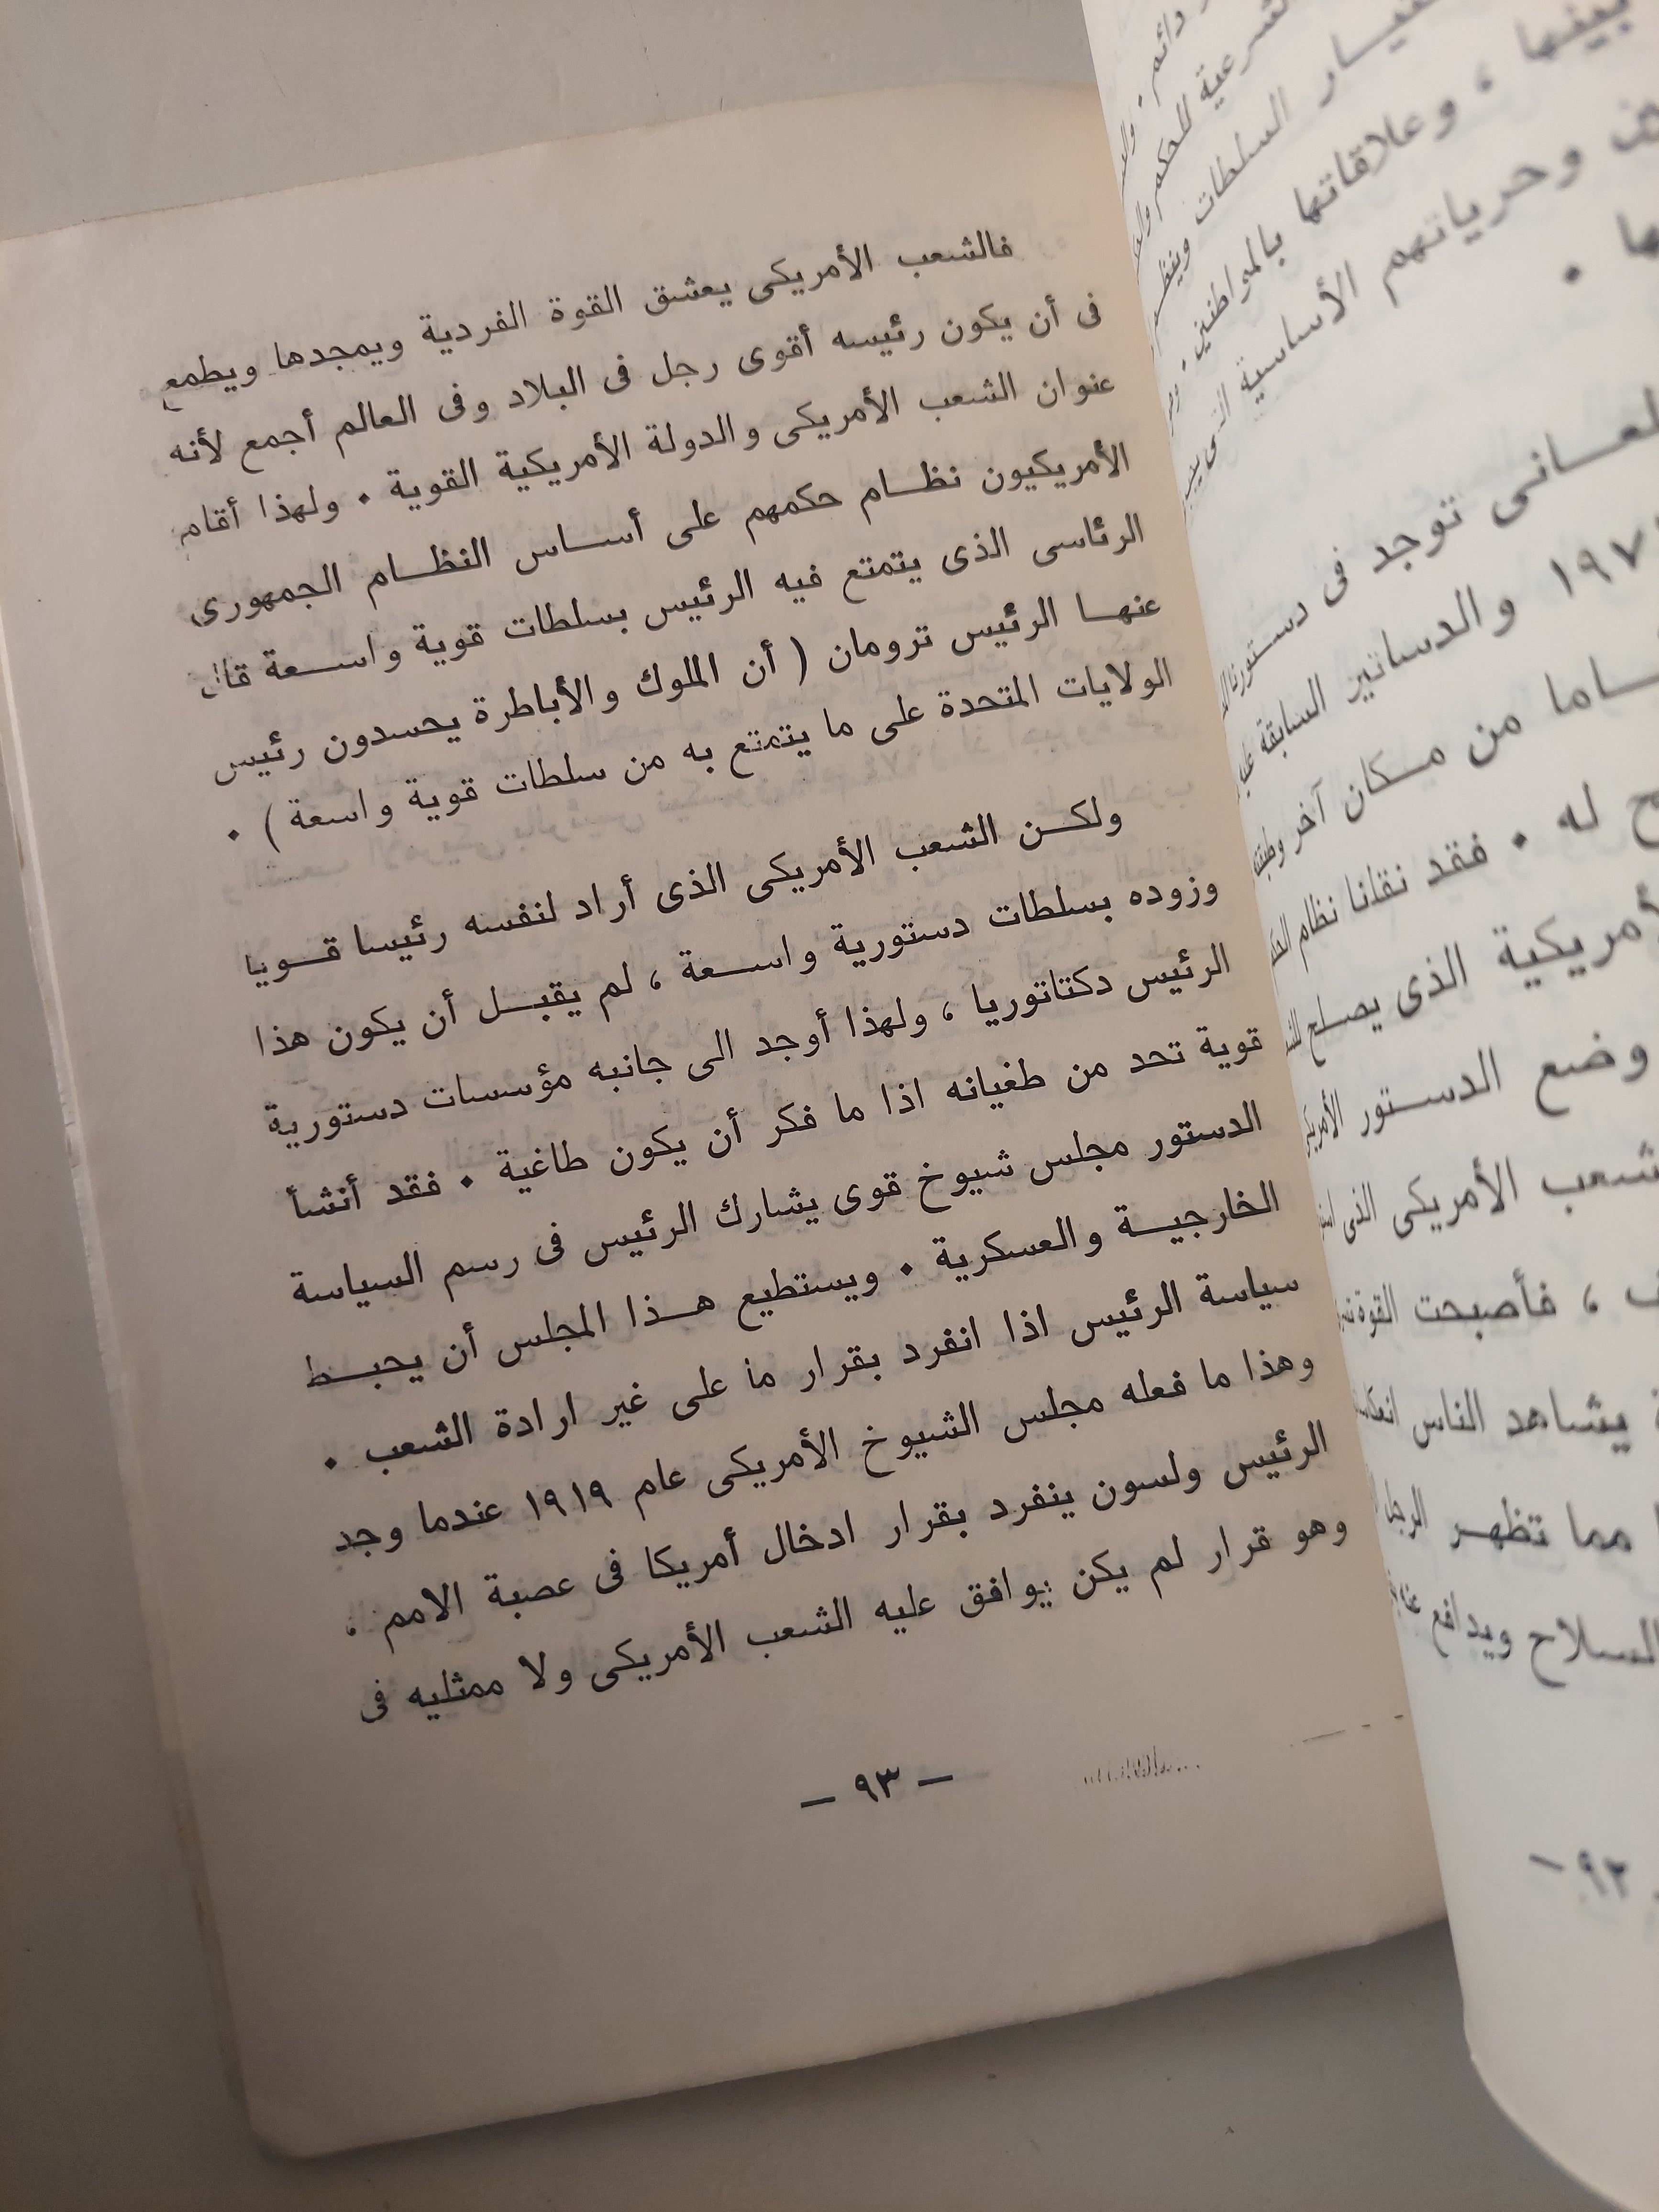 فالشعب الأمريكى يعشق القوة الفردية ويمجدها ويطمع
فى أن يكون رئيسه أقوى رجل فى البلاد وفى العالم أجمع لأنه
عنوان الشعب الأمريكى والدولة الأمريكية القوية . ولهذا أقام
الأمريكيون نظام حكمهم على أساس النظام الجمهورى
الرئاسى الذى يتمتع فيه الرئيس بسلطات قوية واسعة قال
عنها الرئيس ترومان ( أن الملوك والأباطرة يحسدون رئيس
الولايات المتحدة على ما يتمتع به من سلطات قوية واسعة ) .
ولكن الشعب الأمريكى الذى أراد لنفسه رئيسا قويا
وزوده بسلطات دستورية واسعة ، لم يقبل أن يكون هذا
الرئيس دكتاتوريا ، ولهذا أوجد الى جانبه مؤسسات دستورية
قوية تحد من طغيانه اذا ما فكر أن يكون طاغية . فقد أنشأ
الدستور مجلس شيوخ قوى يشارك الرئيس فى رسم السياسة
الخارجية والعسكرية . ويستطيع هذا المجلس أن يحبط
سياسة الرئيس اذا انفرد بقرار ما على غير ارادة الشعب .
وهذا ما فعله مجلس الشيوخ الأمريكى عام ١٩١٩ عندما وجد
الرئيس ولسون ينفرد بقرار ادخال أمريكا فى عصبة الامم ،
وهو قرار لم يكن يوافق عليه الشعب الأمريكى ولا ممثليه فى
— ٩٣ —
دائم .
الشرعية للحكم
السلطات
بينها ، وعلاقاتها بالمواطنين .
وحرياتهم الأساسية التى
توجد فى دستورنا
والدساتير السابقة
من مكان آخر
له . فقد نقلنا نظام
الذى يصلح
وضع الدستور
الأمريكى الذى
، فأصبحت القوة
يشاهد الناس
مما تظهر
السلاح ويدافع
٩٢ —